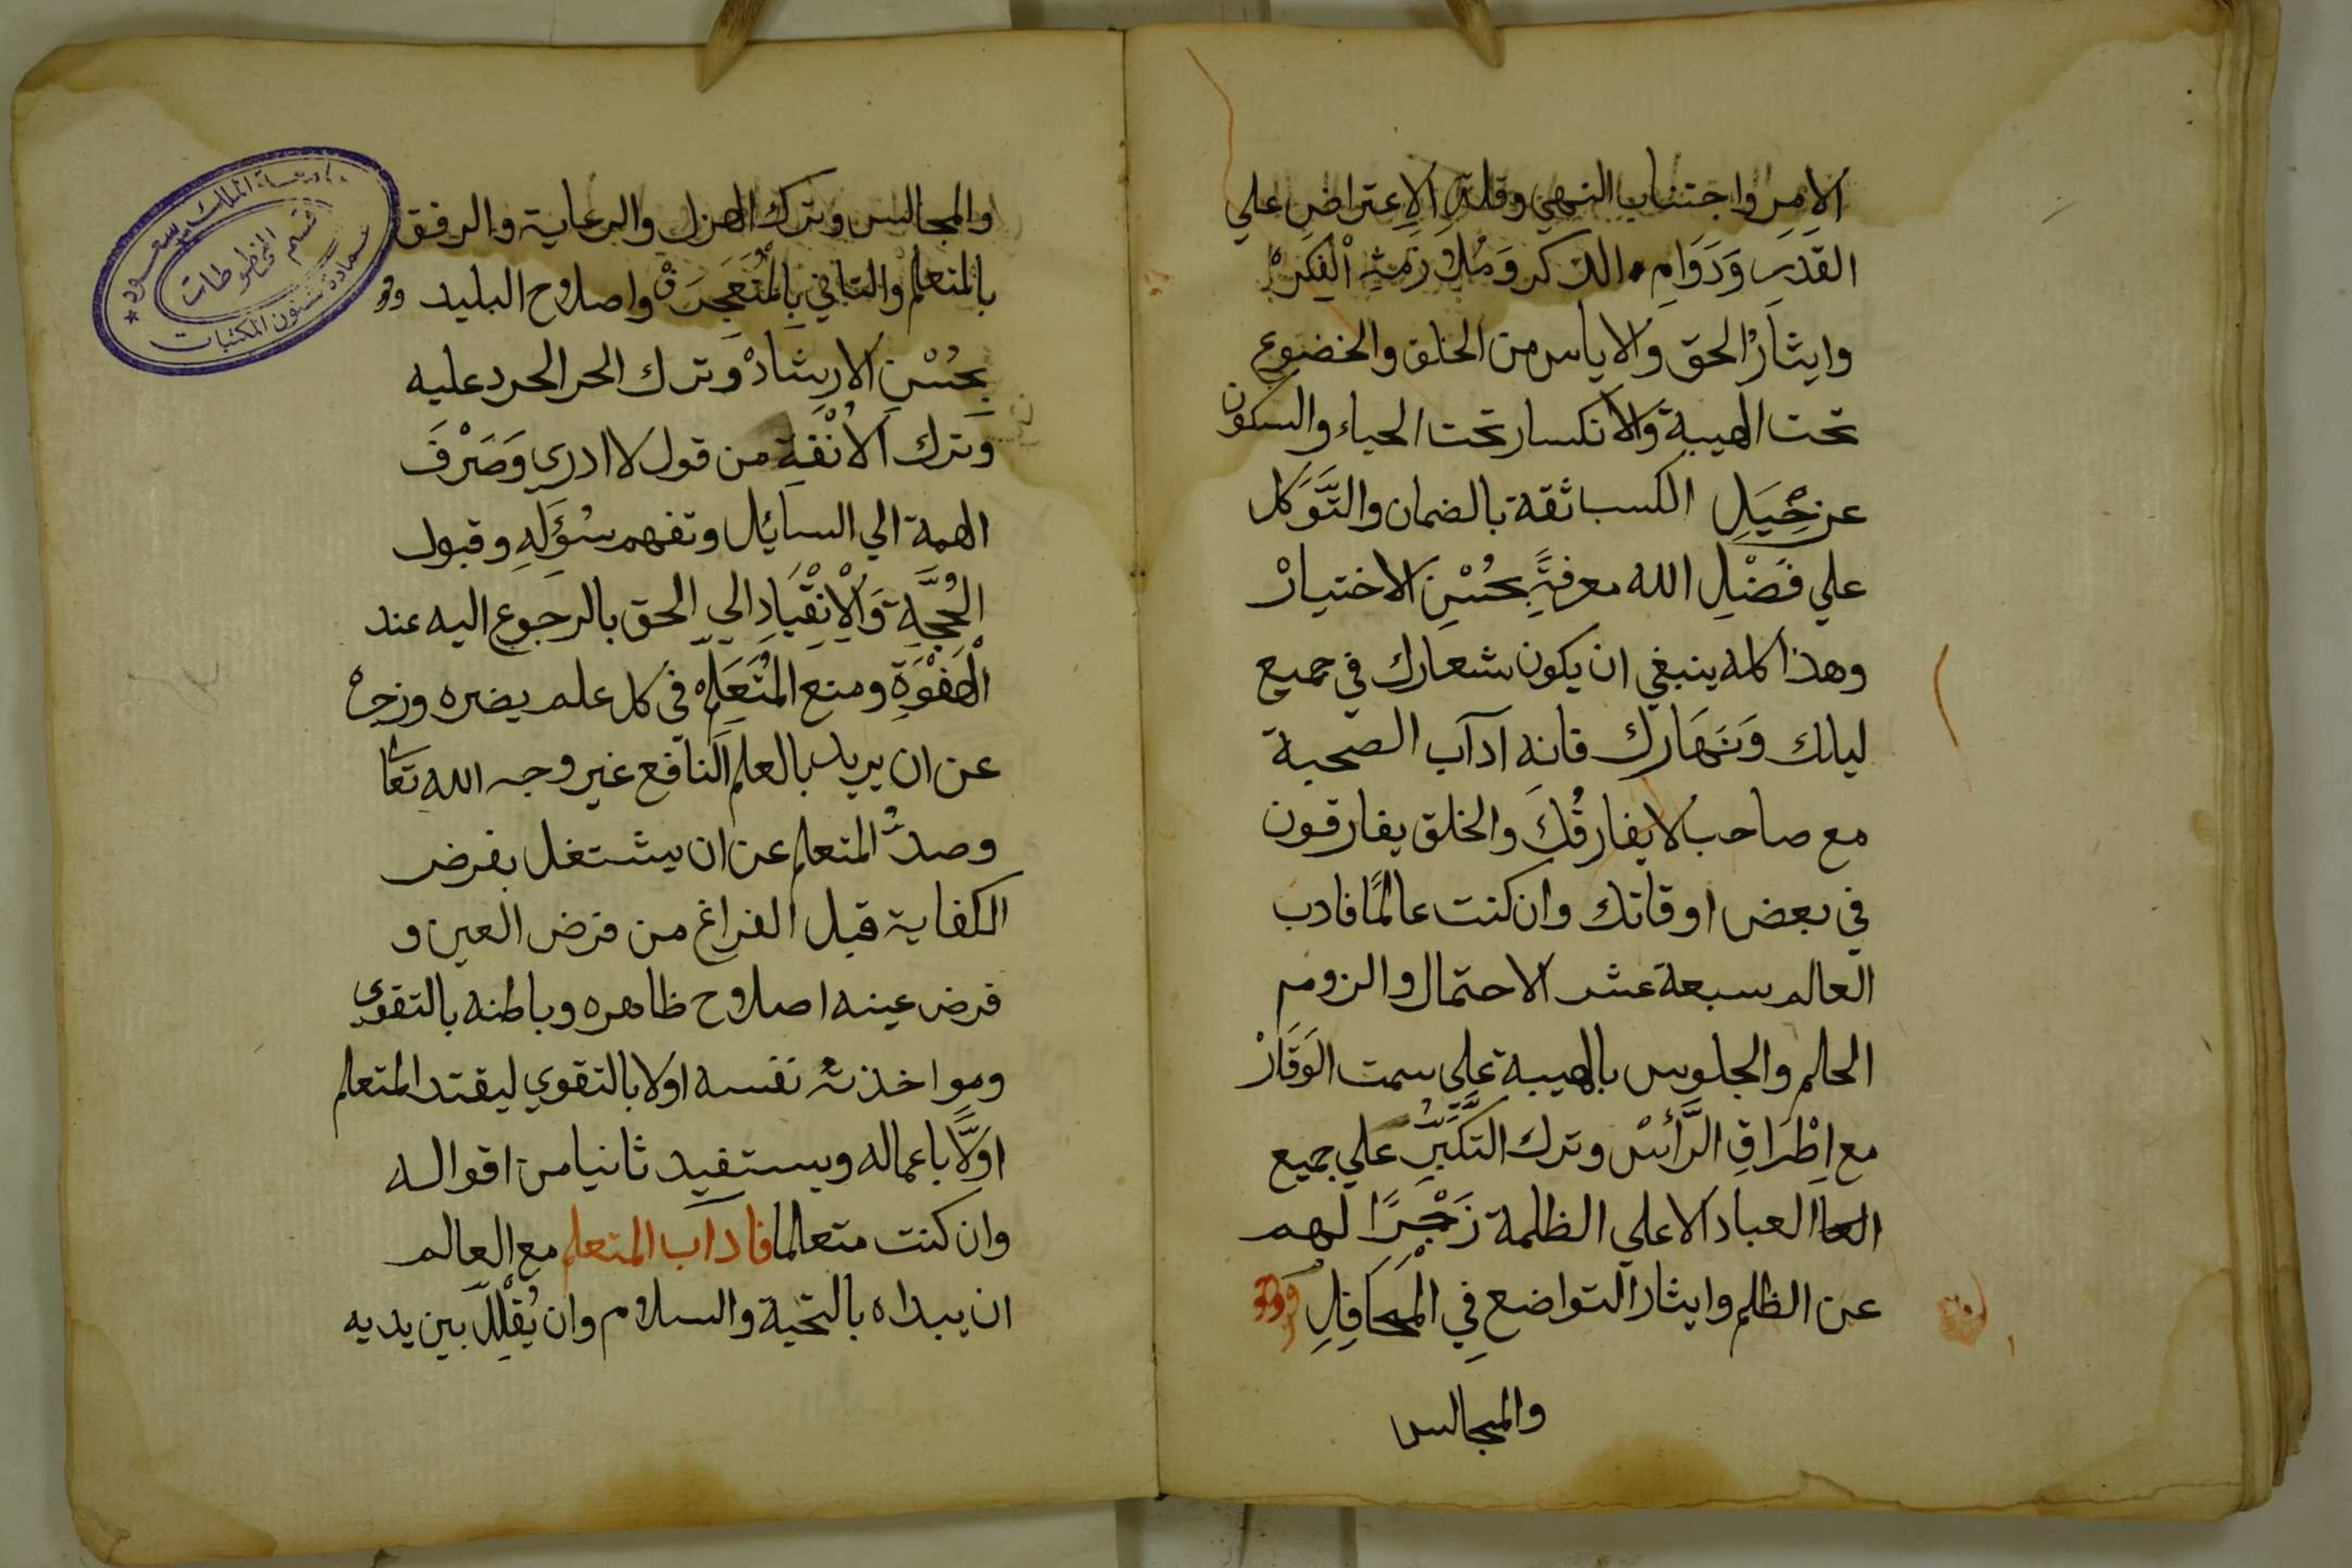 الامر واجتناب النهي وقلة الاعتراض علي
القدر ودوام الذكر وملازمة الفكر
وايثار الحق والاياس من الخلق والخضوع
تحت الهيبة والانكسار تحت الحياء والسكون
عن حِيَلِ الكسب ثقة بالضمان والتَّوَكل
علي فَضْلِ الله معرفةً بحُسْنِ الاختيارْ
وهذا كله ينبغي ان يكون شعارك في جميع
ليلك وَنَهَارك فانه آداب الصحبة
مع صاحب لا يفارقُكَ والخلق يفارقون
في بعض اوقاتك وان كنت عالمًا فادب
العالم سبعة عشر الاحتمال والزوم
الحلم والجلوس بالهيبة علي سمت الوَقَارْ
مع اِطْرَاقِ الرَّأسْ وترك التَكَبُّرِ علي جميع
العباد الا علي الظلمة زَجْرًا لهم
عن الظلم وايثار التواضع فِي الْمَحَافِلِ
والمجالس
والمجالس وترك الهزل والرعاية والرفق
بالمتعلم والتاني بِالْمُتَعَجْرِفْ واصلاح البليد
بحُسْنِ الارشادْ وترك الحر الحرد عليه
وترك الاُنْفَةِ من قول لا ادري وَصَرْفَ
الهمة الي السائِل وتفهم سُؤَلَهِ وقبول
الحُجَّةِ وَالْاِنْقْيَادِ الي الحق بالرجوع اليه عند
الْهَفْوَةِ ومنع المُتَعَلِّم في كل علم يضره وزجره
عن ان يريد بالعلم النافع غير وجه الله تعا
وصدُّ المتعلم عن ان يشتغل بفرض
الكفاية قبل الفراغ من فرض العين و
فرض عينه اصلاح ظاهره وباطنه بالتقوي
ومواخذته نفسه اولا بالتقوي ليقتد المتعلم
اولًا باعماله ويستفيد ثانيا من اقواله
وان كنت متعلما فاداب المتعلم مع العالم
ان يبداه بالتحية والسلام وان يُقْلِلَ بين يديه
جامعة الملك سعود
قسم المخطوطات
عمادة شئون المكتبات